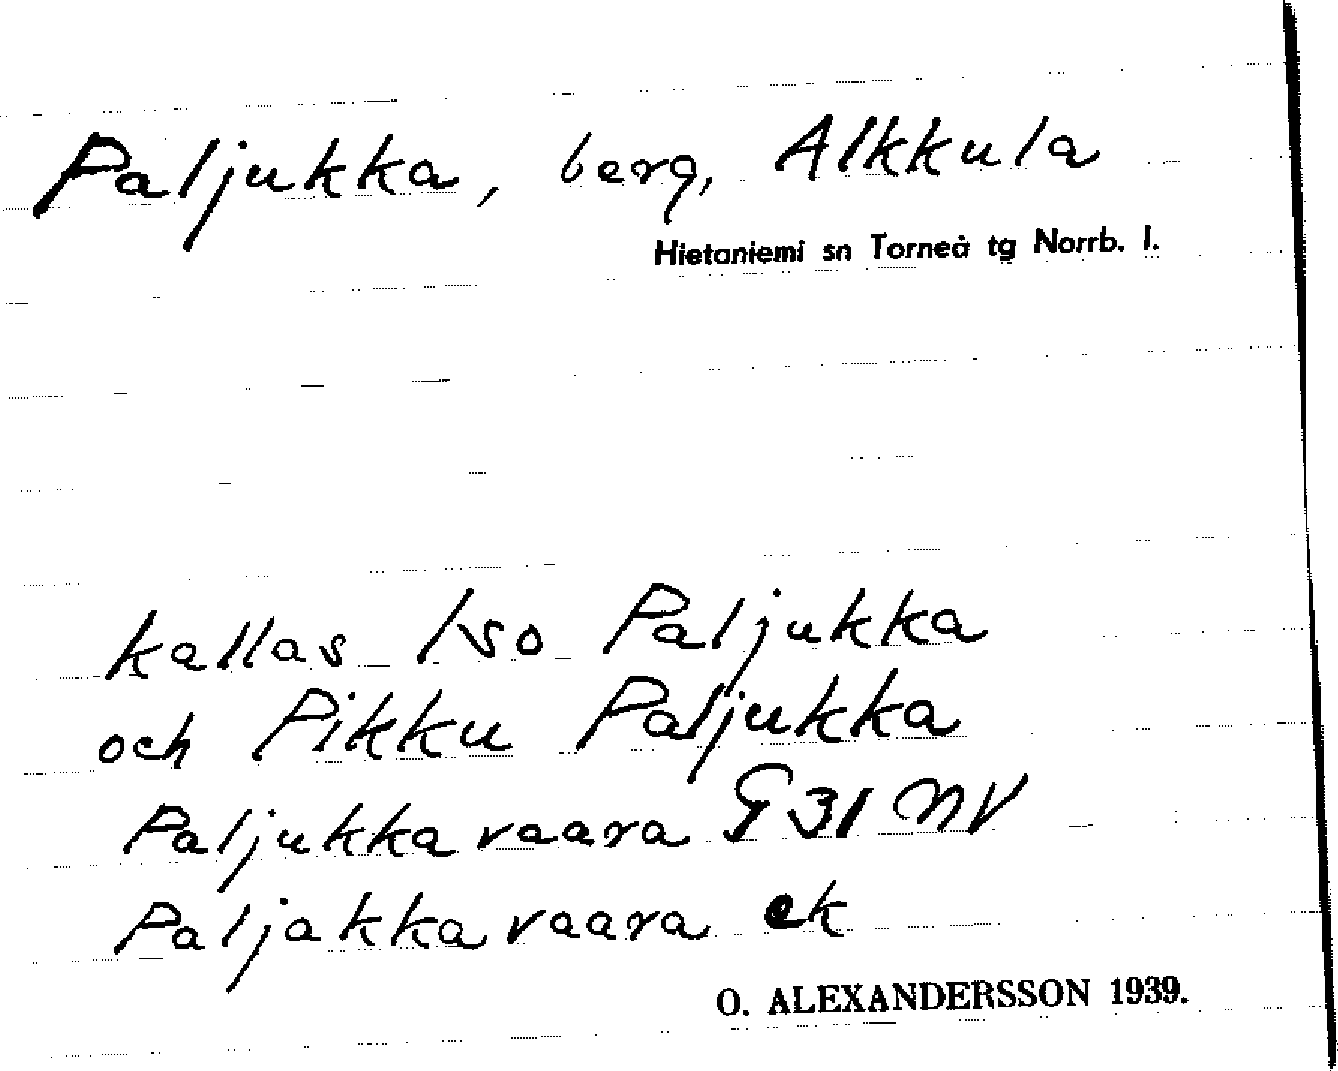 Paljukka, berg, Alkkula
Hietaniemi sn Torneå tg Norrb. l.
kallas Iso Paljukka
och Pikku Paljukka
Paljukkavaara G 31 NV
Paljakkavaara ek
O. ALEXANDERSSON 1939.